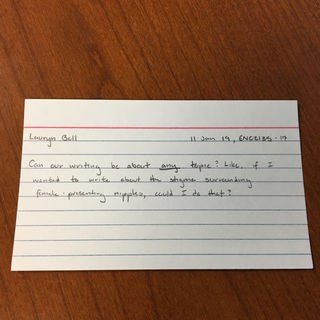 Lauryn Bell 11 Jan 19, ENG2135-17
Can our writing be about any topic? Like, if I
wanted to write about the stigma surrounding
female-presenting nipples, could I do that?